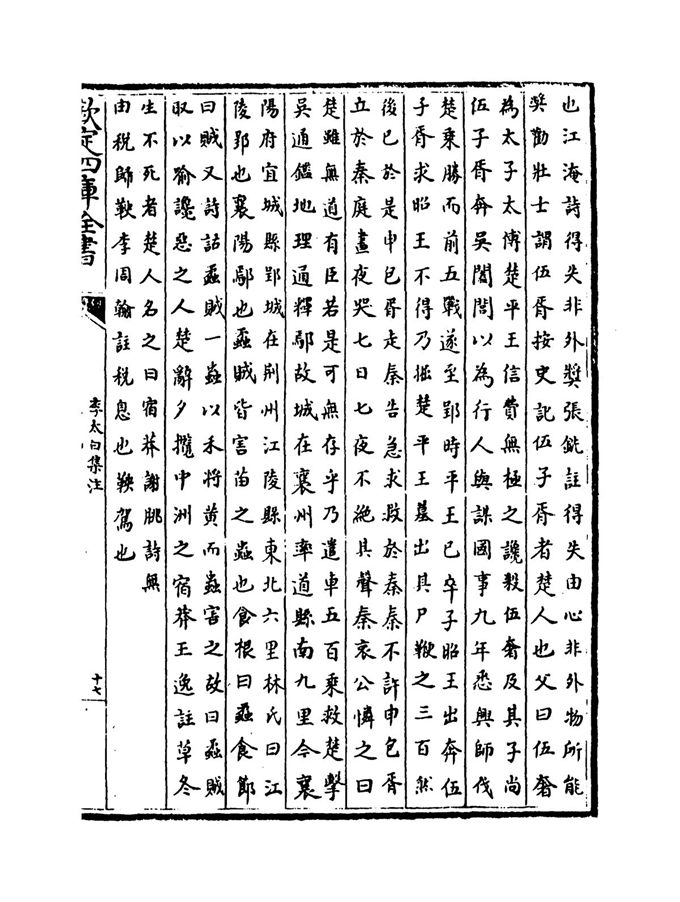 也江淹詩得失非外奬張銑註得失由心非外物所能
奬勸壯士謂伍胥按史記伍子胥者楚人也父曰伍奢
為太子太傅楚平王信費無極之讒殺伍奢及其子尚
伍子胥奔吳闔閭以為行人與謀國事九年悉興師伐
楚乘勝而前五戰遂至郢時平王已卒子昭王出奔伍
子胥求昭王不得乃掘楚平王墓出其尸鞭之三百然
後已於是申包胥走秦告急求救於秦秦不許申包胥
立於秦庭晝夜哭七日七夜不絶其聲秦哀公憐之曰
楚雖無道有臣若是可無存乎乃遣車五百乘救楚擊
吳通鑑地理通釋鄢故城在襄州率道縣南九里今襄
陽府宜城縣郢城在荆州江陵縣東北六里林氏曰江
陵郢也襄陽鄢也蟊賊皆害苗之蟲也食根曰蟊食節
曰賊又詩詁蟊賊一蟲以禾將黄而蟲害之故曰蟊賊
取以喻讒惡之人楚辭夕攬中洲之宿莽王逸註草冬
生不死者楚人名之曰宿莽謝朓詩無
由税歸鞅李周翰註税息也鞅駕也
欽定四庫全書
李太白集注
十七